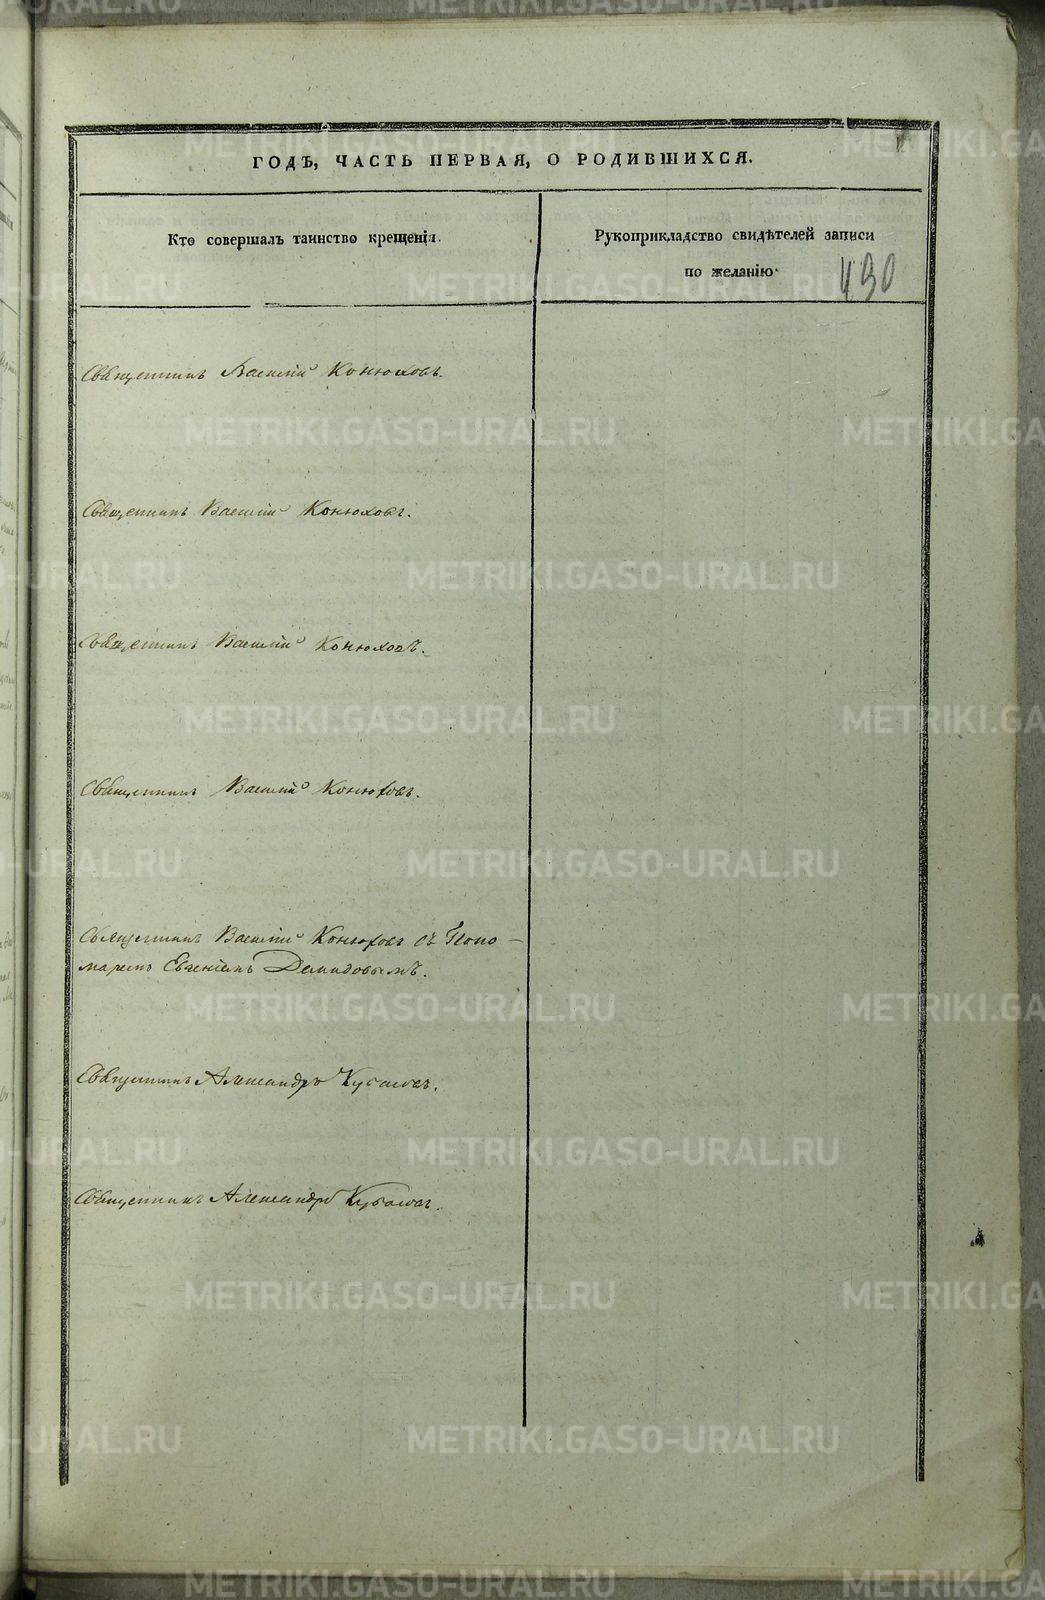 ГОДЪ, ЧАСТЬ ПЕРВАЯ, О РОДИВШИХСЯ.
Кто совершалъ таинство крещенія.
Рукоприкладство свидѣтелей записи
по желанію·
490
Священникъ Василій Конюховъ.
Священникъ Василій Конюховъ.
Священникъ Василій Конюховъ.
Священникъ Василій Конюховъ.
Священникъ Василій Конюховъ съ Поно-
маремъ Евгеніемъ Демидовымъ.
Священникъ Александръ
Священникъ Александръ
METRIKI.GASO-URAL.RU